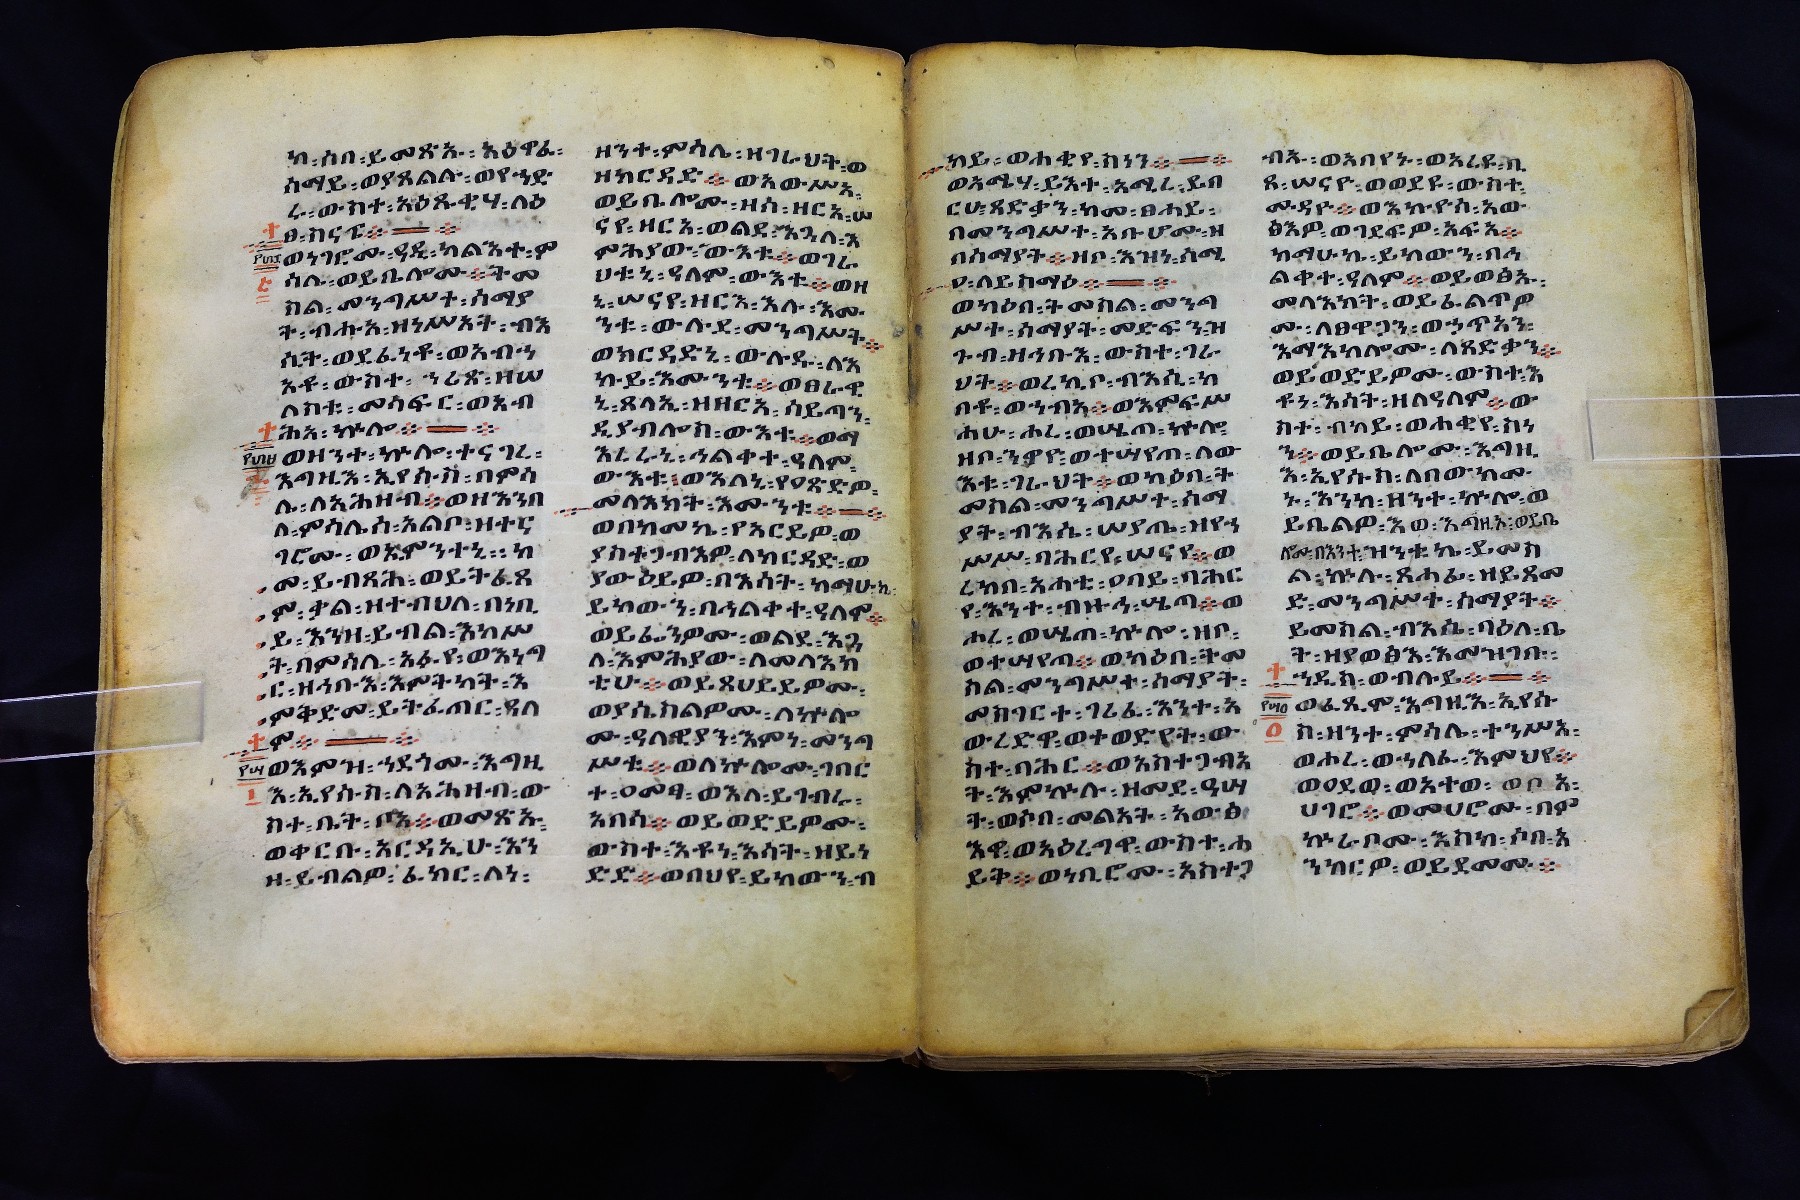 ከ፡ሶበ፡ይመጽኡ፡አዕዋፈ፡
ሰማይ፡ወያጸልሉ፡ወየኀድ
ሩ፡ውስተ፡አዕጹቂሃ፡ለዕ
ፀ፡ስናፔ።
ወነገሮሙ፡ዓዲ፡ካልእተ፡ም
ሳሌ፡ወይቤሎሙ።ትመ
ስል፡መንግሥተ፡ሰማያ
ት፡ብሑአ፡ዘነሥአት፡ብእ
ሲት፡ወደፈነቶ፡ወአብኀ
አቶ፡ውስተ፡ኀሪጽ፡ዘሠ
ለስቱ፡መሳፍር፡ወአብ
ሕአ፡ኵሎ።
ወዘንተ፡ኵሎ፡ተናገረ፡
እግዚእ፡ኢየሱስ፡በምሳ
ሌ፡ለአሕዛብ።ወዘእንበ
ለ፡ምሳሌሰ፡አልቦ፡ዘተና
ገሮሙ፡ወኢምንተኒ፡ከ
መ፡ይብጻሕ፡ወይትፈጸ
ም፡ቃል፡ዘተብህለ፡በነቢ
ይ፡እንዘ፡ይብል፡እከሥ
ት፡በምሳሌ፡አፉየ፡ወእነግ
ር፡ዘኅቡእ፡እምትካት፡እ
ምቅድመ፡ይትፈጠር፡ዓለ
ም።
ወእምዝ፡ኀደጎሙ፡እግዚ
እ፡ኢየሱስ፡ለአሕዛብ፡ው
ስተ፡ቤት፡ቦአ።ወመጽኡ፡
ወቀርቡ፡አርዳኢሁ፡እን
ዘ፡ይብልዎ፡ፈክር፡ለነ፡
ዘንተ፡ምሳሌ፡ዘገራህት፡ወ
ዘክርዳድ።ወአውሥአ፡
ወይቤሎሙ፡ዘሰ፡ዘርአ፡ሠ
ናየ፡ዘርአ፡ወልደ፡እጓለ፡እ
ምሕያው፡ውእቱ።ወገራ
ህቱኒ፡ዓለም፡ውእቱ።ወዘ
ኒ፡ሠናየ፡ዘርእ፡እሉ፡እሙ
ንቱ፡ውሉደ፡መንግሥት።
ወክርዳድኒ፡ውሉዱ፡ለእ
ኩይ፡እሙንቱ።ወፀራዊ
ኒ፡ጸላኢ፡ዘዘርአ፡ሰይጣን፡
ዲያብሎስ፡ውእቱ።ወማ
እረራኒ፡ኅልቀተ፡ዓለም፡
ውእቱ፡ወእለኒ፡የዐጽድዎ፡
መላእክት፡እሙንቱ።
ወበከመኬ፡የአርይዎ፡ወ
ያስተጋብእዎ፡ለክርዳድ፡ወ
ያውዕይዎ፡በእሳት፡ከማሁኬ፡
ይከውን፡በኅልቀተ፡ዓለም።
ወይፌንዎሙ፡ወልደ፡እጓ
ለ፡እምሕያው፡ለመላእክ
ቲሁ።ወይጸህይይዎሙ፡
ወያሴስልዎሙ፡ለኵሎ
ሙ፡ዓለዊያን፡እምነ፡መንግ
ሥቱ።ወለኵሎሙ፡ገበር
ተ፡ዐመፃ፡ወእለ፡ይገብሩ፡
አበሳ።ወይወድይዎሙ፡
ውስተ፡እቶነ፡እሳት፡ዘይነ
ድድ።ወበህየ፡ይከውን፡ብ
ካይ፡ወሐቂየ፡ስነን።
ወአሜሃ፡ይእተ፡አሚረ፡ይበ
ርሁ፡ጻድቃን፡ከመ፡ፀሐይ፡
በመንግሥተ፡አቡሆሙ፡ዘ
በሰማያት።ዘቦ፡እዝነ፡ሰሚ
ዐ፡ለይስማዕ።
ወካዕበ፡ትመስል፡መንግ
ሥተ፡ሰማያት፡መድፍን፡ዝ
ጉብ፡ዘኅቡእ፡ውስተ፡ገራ
ህት።ወረኪቦ፡ብእሲ፡ከ
በቶ፡ወኀብአ።ወእምፍሥ
ሐሁ፡ሖረ፡ወሤጠ፡ኵሎ፡
ዘቦ፡ንዋየ፡ወተሣየጠ፡ለው
እቱ፡ገራህት።ወካዕበ፡ት
መስል፡መንግሥተ፡ሰማ
ያት፡ብእሴ፡ሠያጤ፡ዘየኀ
ሥሥ፡ባሕርየ፡ሠናየ።ወ
ረከበ፡አሐቲ፡ዐባይ፡ባሕር
የ፡እንተ፡ብዙኅ፡ሤጣ።ወ
ሖረ፡ወሤጠ፡ኵሎ፡ዘቦ፡
ወተሣየጣ።ወካዕበ፡ትመ
ስል፡መንግሥተ፡ሰማያት፡
መስገርተ፡ገሪፈ፡እንተ፡አ
ውረድዋ፡ወተወድየት፡ው
ስተ፡ባሕር።ወአስተጋብአ
ት፡እምኵሉ፡ዘመደ፡ዓሣ
ት፡ወሶበ፡መልአት፡አውፅ
እዋ፡ወአዕረግዋ፡ውስተ፡ሐ
ይቅ።ወነቢሮሙ፡አስተጋ
ብኡ፡ወአበየኑ፡ወአረዩ፡ኄ
ጸ፡ሠናየ፡ወወደዩ፡ውስተ፡
ሙዳየ።ወእኩየሰ፡አው
ፅእዎ፡ወገደፍዎ፡አፍአ።
ከማሁኬ፡ይከውን፡በኅ
ልቀተ፡ዓለም።ወይወፅኡ፡
መላእክት፡ወይፈልጥዎ
ሙ፡ለፀዋጋን፡ወኃጥአን፡
እማእከሎሙ፡ለጻድቃን።
ወይወድይዎሙ፡ውስተ፡እ
ቶነ፡እሳት፡ዘለዓለም።ው
ስተ፡ብካይ፡ወሐቂየ፡ስነ
ን።ወይቤሎሙ፡እግዚ
እ፡ኢየሱስ፡ለበውከሙ
ኑ፡እንከ፡ዘንተ፡ኵሎ፡ወ
ይቤልዎ፡እወ፡እግዚኦ፡ወይቤ
ሎሙ፡በእንተ፡ዝንቱኬ፡ይመስ
ል፡ኵሉ፡ጸሐፊ፡ዘይጸመ
ድ፡መንግሥተ፡ሰማያት።
ይመስል፡ብእሴ፡ባዕለ፡ቤ
ት፡ዘያወፅእ፡እመዝገቡ፡
ኀዲስ፡ወብሉይ።
ወፈጺሞ፡እግዚእ፡ኢየሱ
ስ፡ዘንተ፡ምሳሌ፡ተንሥአ፡
ወሖረ፡ወኀለፈ፡እምህየ።
ወዐደወ፡ወአተወ፡ወቦአ፡
ሀገሮ።ወመሀሮሙ፡በም
ኵራቦሙ፡እስከ፡ሶበ፡አ
ንከርዎ፡ወይደመሙ።